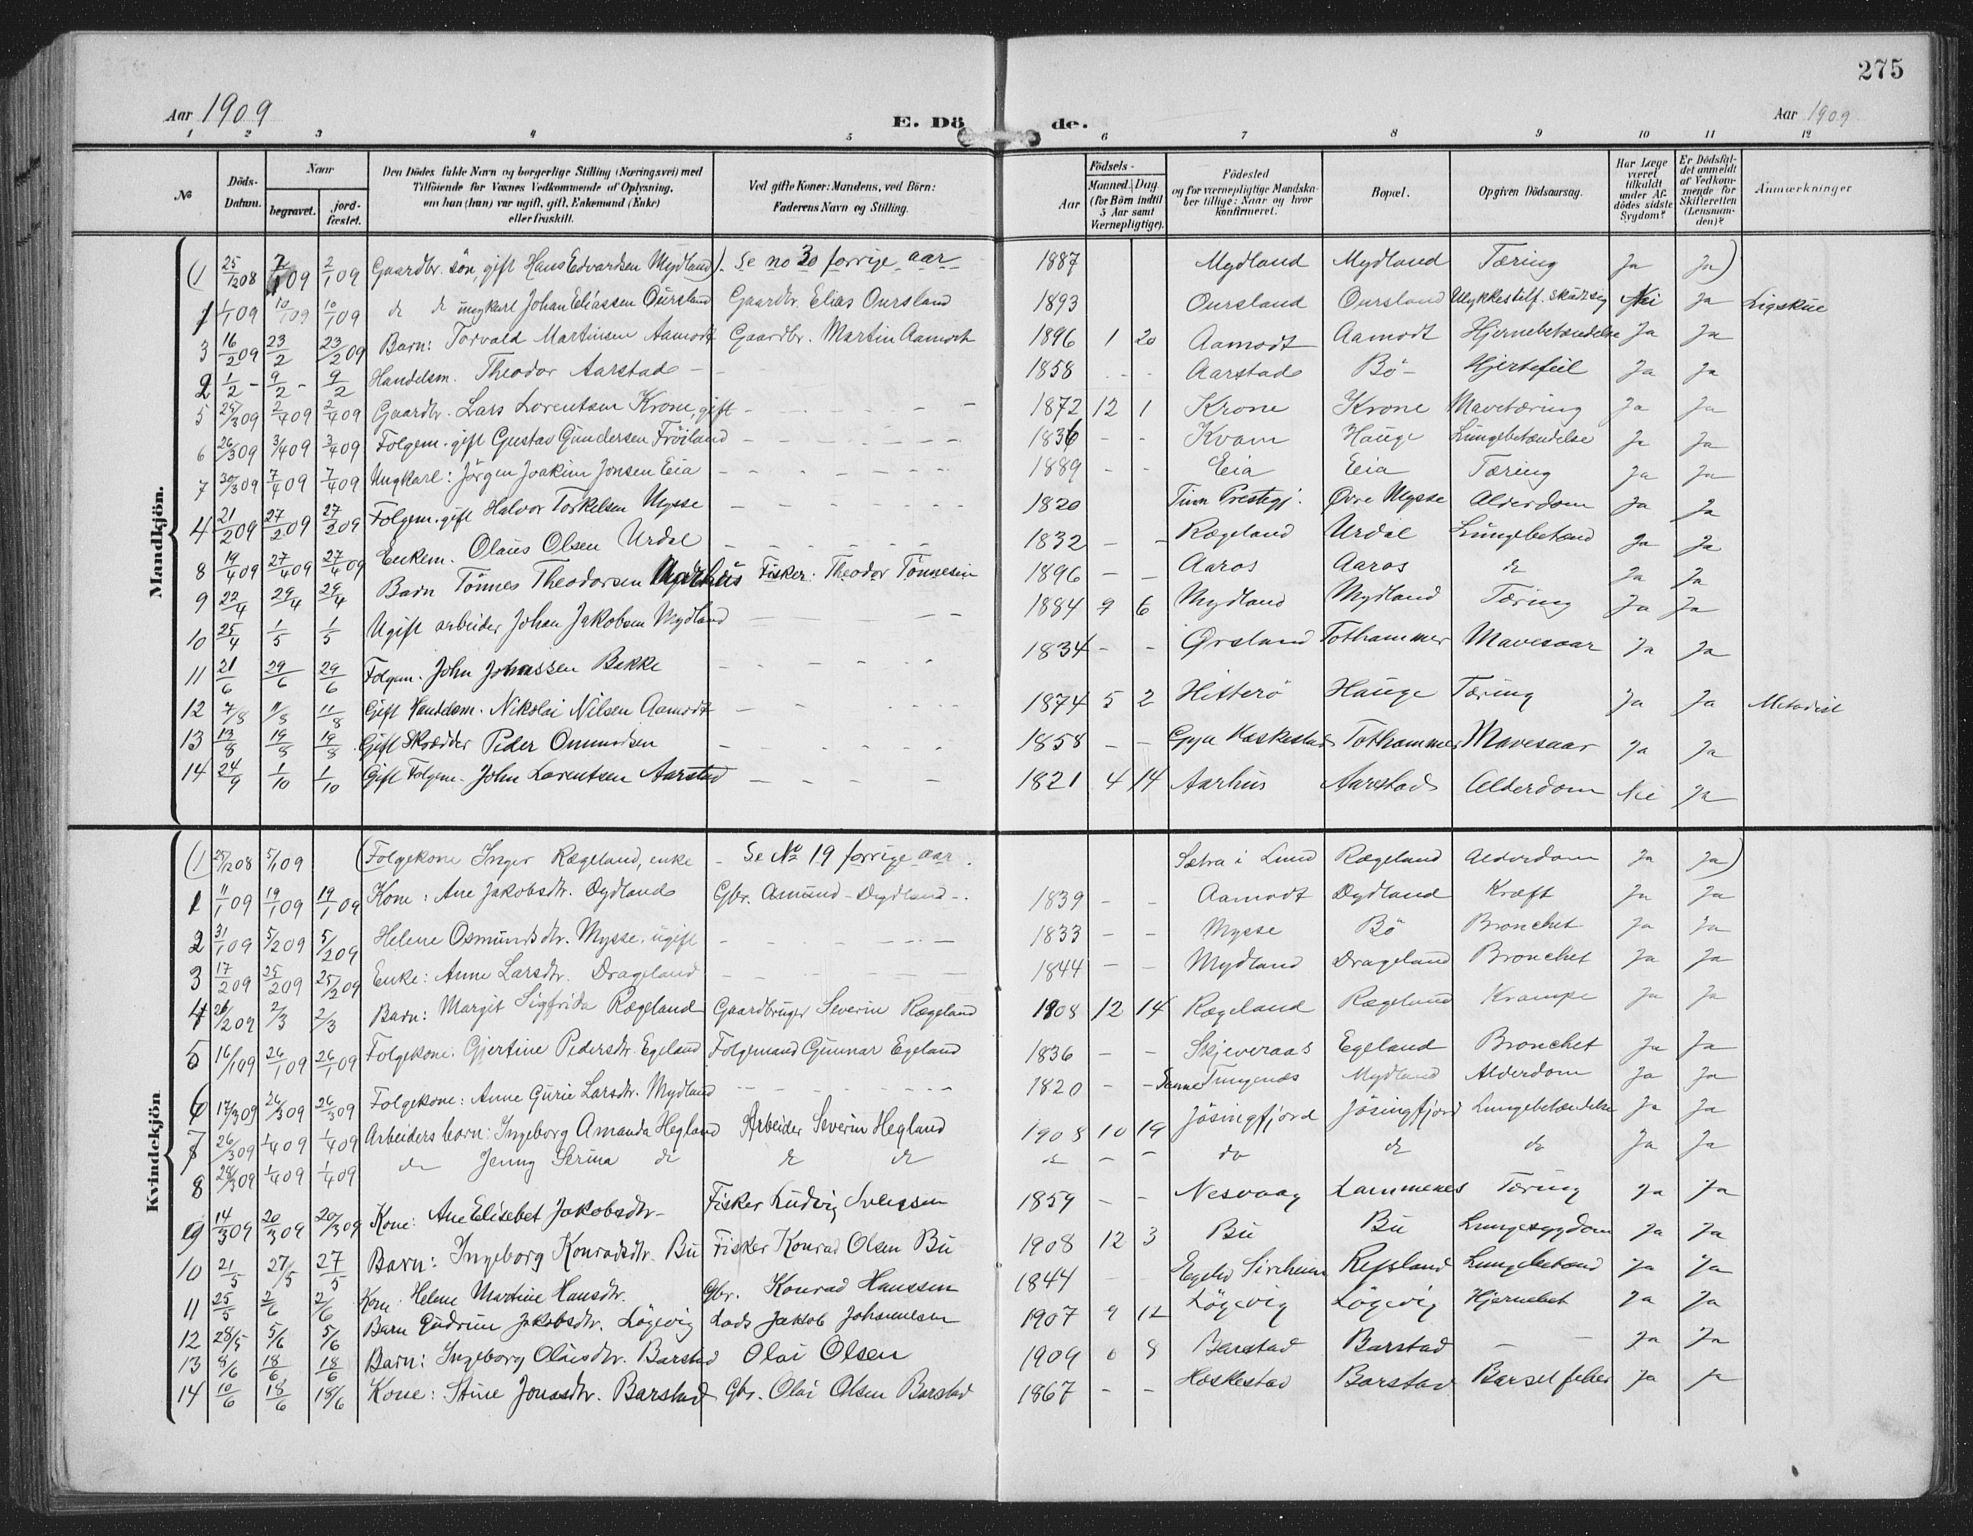 275
Aar 1909
E. Dö de.
Aar 1909
1 2 3 4 5 6 7 8 9 10 11 12
No
Döds-Datum.
Naar
begravet.
jordfæstet.
Den Dödes fulde Navn og borgerlige Stilling (Næringsvei) med
Tilföiende for Voxnes Vedkommende af Oplysning,
om han (hun) var ugift, gift, Enkemand (Enke)
eller fraskilt.
Ved gifte Koner: Mandens, ved Börn:
Faderens Navn og Stilling.
Födsels-
Aar
Maaned. Dag.
(for Börn indtil
5 Aar samt
Værnepligtige).
Födested
og for værnepligtige Mandskaber
tillige: Naar og hvor
konfirmeret.
Bopæl.
Opgiven Dödsaarsag.
Har Læge
været
tilkaldt
under Afdödes
sidste
Sygdom?
Er Dödsfaldet
anmeldt
af Vedkommende
for
Skifteretten
(Lensmanden)?
Anmærkninger
Mandkjön.
(1 25/12 08 2/1 09 2/1 09 Gaardbr. sön, gift Hans Edvardsen Mydland). Se no 30 forrige aar 1887 Mydland Mydland Tæring Ja Ja)
1 1/1 09 10/1 09 10/1 09 d d ungkarl Johan Eliassen Oursland Gaardbr. Elias Oursland 1893 Oursland Oursland Ulykkestilf. skudt sig Nei Ja Ligskue
3 16/2 09 23/2 23/2 09 Barn: Torvald Martinsen Aamodt Gaardbr. Martin Aamodt 1896 1 20 Aamodt Aamodt Hjernebetændelse Ja Ja
2 1/2 - 9/2 - 9/2 Handelsm. Theodor Aarstad - 1858 - - Aarstad Bö - Hjertefeil Ja Ja
5 25/3 09 2/4 09 2/4 09 Gaardbr. Lars Lorentsen Krone, gift 1872 12 1 Krone Krone Mavetæring Ja Ja
6 26/3 09 3/4 09 3/4 09 Folgem. gift Gustav Gundersen Fröiland 1836 - - Kvam Hauge Lungebetændelse Ja Ja
7 30/3 09 7/4 09 7/4 09 Ungkarl: Jörgen Joakim Jonsen Eia 1889 - - Eia Eia Tæring Ja Ja
4 21/2 09 27/2 09 27/2 09 Folgem. gift Halvor Torkelsen Mysse 1820 Tinn Prestegj. Øvre Mysse Alderdom Ja Ja
8 19/4 09 27/4 09 27/4 09 Enkem. Olaus Olsen Urdal 1832 - - Rægeland Urdal Lungebetænd Ja Ja
9 22/4 29/4 29/4 Barn Tönnes Theodorsen Fisker: Theodor Tönnesen 1896 - - Aaros Aaros d Ja Ja
10 25/4 1/5 1/5 Ugift arbeider Johan Jakobsen Mydland 1884 9 6 Mydland Mydland Tæring Ja Ja
11 21/6 29/6 29/6 Folgem. John Johnassen Bakke 1834 - - Ørsland Tothammer Mavesaar Ja Ja
12 7/8 11/8 11/8 Gift Handelsm. Nikolai Nilsen Aamodt 1874 5 2 Hitterö Hauge Tæring Ja Ja Metodist
13 13/8 19/8 19/8 Gift Skrædder Peder Ommundsen 1858 - - Gya Heskestad Tothammer Mavesaar Ja Ja
14 24/9 1/10 1/10 Gift Folgem. John Lorentsen Aarstad 1821 4 14 Aarhus Aarstad Alderdom Nei Ja
Kvindekjön
(1 25/12 08 5/1 09 (Folgekone Inger Rægeland, enke - Se No 19 forrige aar. Sætra i Lund Rægeland Alderdom Ja Ja)
1 11/1 09 19/1 09 19/1 09 Kone: Ane Jakobsdtr. Dydland Gbr. Amund Dydland 1839 - - Aamodt Dydland Kræft Ja Ja
2 31/1 09 5/2 09 5/2 09 Helene Osmundsdtr. Mysse. ugift 1833 - - Mysse Bö Bronchet Ja Ja
3 17/2 09 25/2 09 25/2 09 Enke: Anne Larsdtr. Drageland 1844 - - Mydland Drageland Bronchet Ja Ja
4 26/2 09 2/3 2/3 Barn: Margit Sigfrida Rægeland Gaardbruger Severin Rægeland 1908 12 14 Rægeland Rægeland Krampe Ja Ja
5 16/1 09 26/1 09 26/1 09 Folgekone. Gjertine Pedersdtr. Egeland Folgemand Gunnar Egeland 1836 - - Skjeveraas Egeland Bronchet Ja Ja
6 17/3 09 26/3 09 26/3 09 Folgekone: Anne Gurie Larsdtr. Mydland 1820 - - Tungenæs Mydland Alderdom Ja Ja
7 26/3 09 1/4 09 1/4 09 Arbeiders barn: Ingeborg Amanda Hegland Arbeider Severin Hegland 1908 10 19 Jösingfjord Jösingfjord Lungebetændelse Ja Ja
8 28/3 09 1/4 09 1/4 09 do Jenny Serina d d d d - - do d do Ja Ja
9 14/3 09 20/3 09 20/3 09 Kone: Ane Elisebet Jakobsdtr - Fisker Ludvig Svensen 1859 - - Nesvaag Tæring Ja Ja
10 21/5 27/5 27/5 Barn: Ingeborg Konradsdtr. Bu Fisker Konrad Olsen Bu 1908 12 3 Bu Bu Lungesygdom Ja Ja
11 25/5 2/6 2/6 Kone. Helene Martine Hansdtr. Gbr. Konrad Hanssen 1844 Refsland Lungebetænd Ja Ja
12 28/5 5/6 5/6 Barn Gudrun Jakobsdtr. Lögevig Lods Jakob Johannesen 1907 9 12 Lögevig Lögevig Hjernebet Ja Ja
13 8/6 18/6 18/6 Barn: Ingeborg Olaisdtr. Barstad Olai Olsen 1909 0 8 Barstad Barstad - - Ja Ja
14 10/6 18/6 18/6 Kone: Stine Jonasdtr. Barstad Gbr. Olai Olsen Barstad 1867 - - Heskestad Barstad Barselfeber Ja Ja